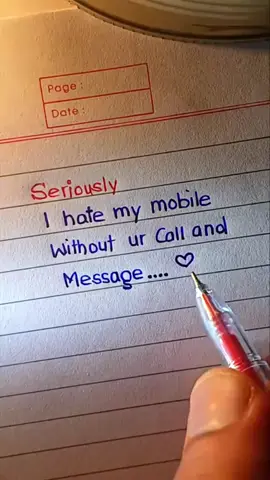 Page :
Date :
Seriously
I hate my mobile
without ur Call and
Message.... ♡